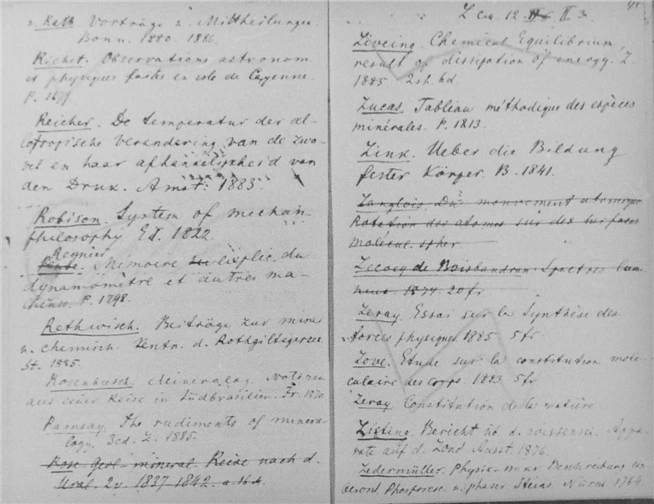 v. Rath. Vorträge u. Mittheilungen.
Bonn. 1880. 1882.
Richer. Observations astronom.
et physiques faites en isle de Cayenne.
P. 1679
Reicher. De temperatur der al-
lotropische verandering van de zwa-
vel en haar afhankelijkheid van
den Druk. Amst. 1883.
Robison. System of mechan.
philosophy Ed. 1822.
Regnier
Mémoire explic. du
dynamomètre et autres ma-
chines. P. 1798.
Rethwisch. Beiträge zur miner.
u. chemisch. Kentn. d. Rothgiltigerze.
St. 1885.
Rosenbusch. Mineralog. Notizen
aus einer Reise in Südbrasilien. Fr. 1870
Ramsay. The rudiments of minera-
logy. 3ed. L. 1885.
Rose. Geol-mineral. Reise nach d.
Ural. 2v. 1837-1842.
L 12. 3.
Liveing. Chemical Equilibrium,
result of dissipation of energy. L.
1885 2sh. 6d.
Lucas. Tableau méthodique des espèces
minérales. P. 1813.
Link. Ueber die Bildung
fester Körper B. 1841.
Langlois. Du mouvement atomique
Rotation des atomes sur des surfaces
molécul. spher.
Lecocq de Boisbaudran. Spectres lum-
ineux. 1874. 20 fr
Leray. Essai sur la Synthèse des
forces physiques 1885 5 fr.
Love. Etude sur la constitution molé-
culaire des corps. 1883 5 fr.
Leray Constitution de la matière
Bericht üb. d. wissensch. Appa-
rate auf d. Lond. Ausst 1876.
Ledermüller. Physik- Beschreibung
Phosphor. Steins. Nürnb 1764